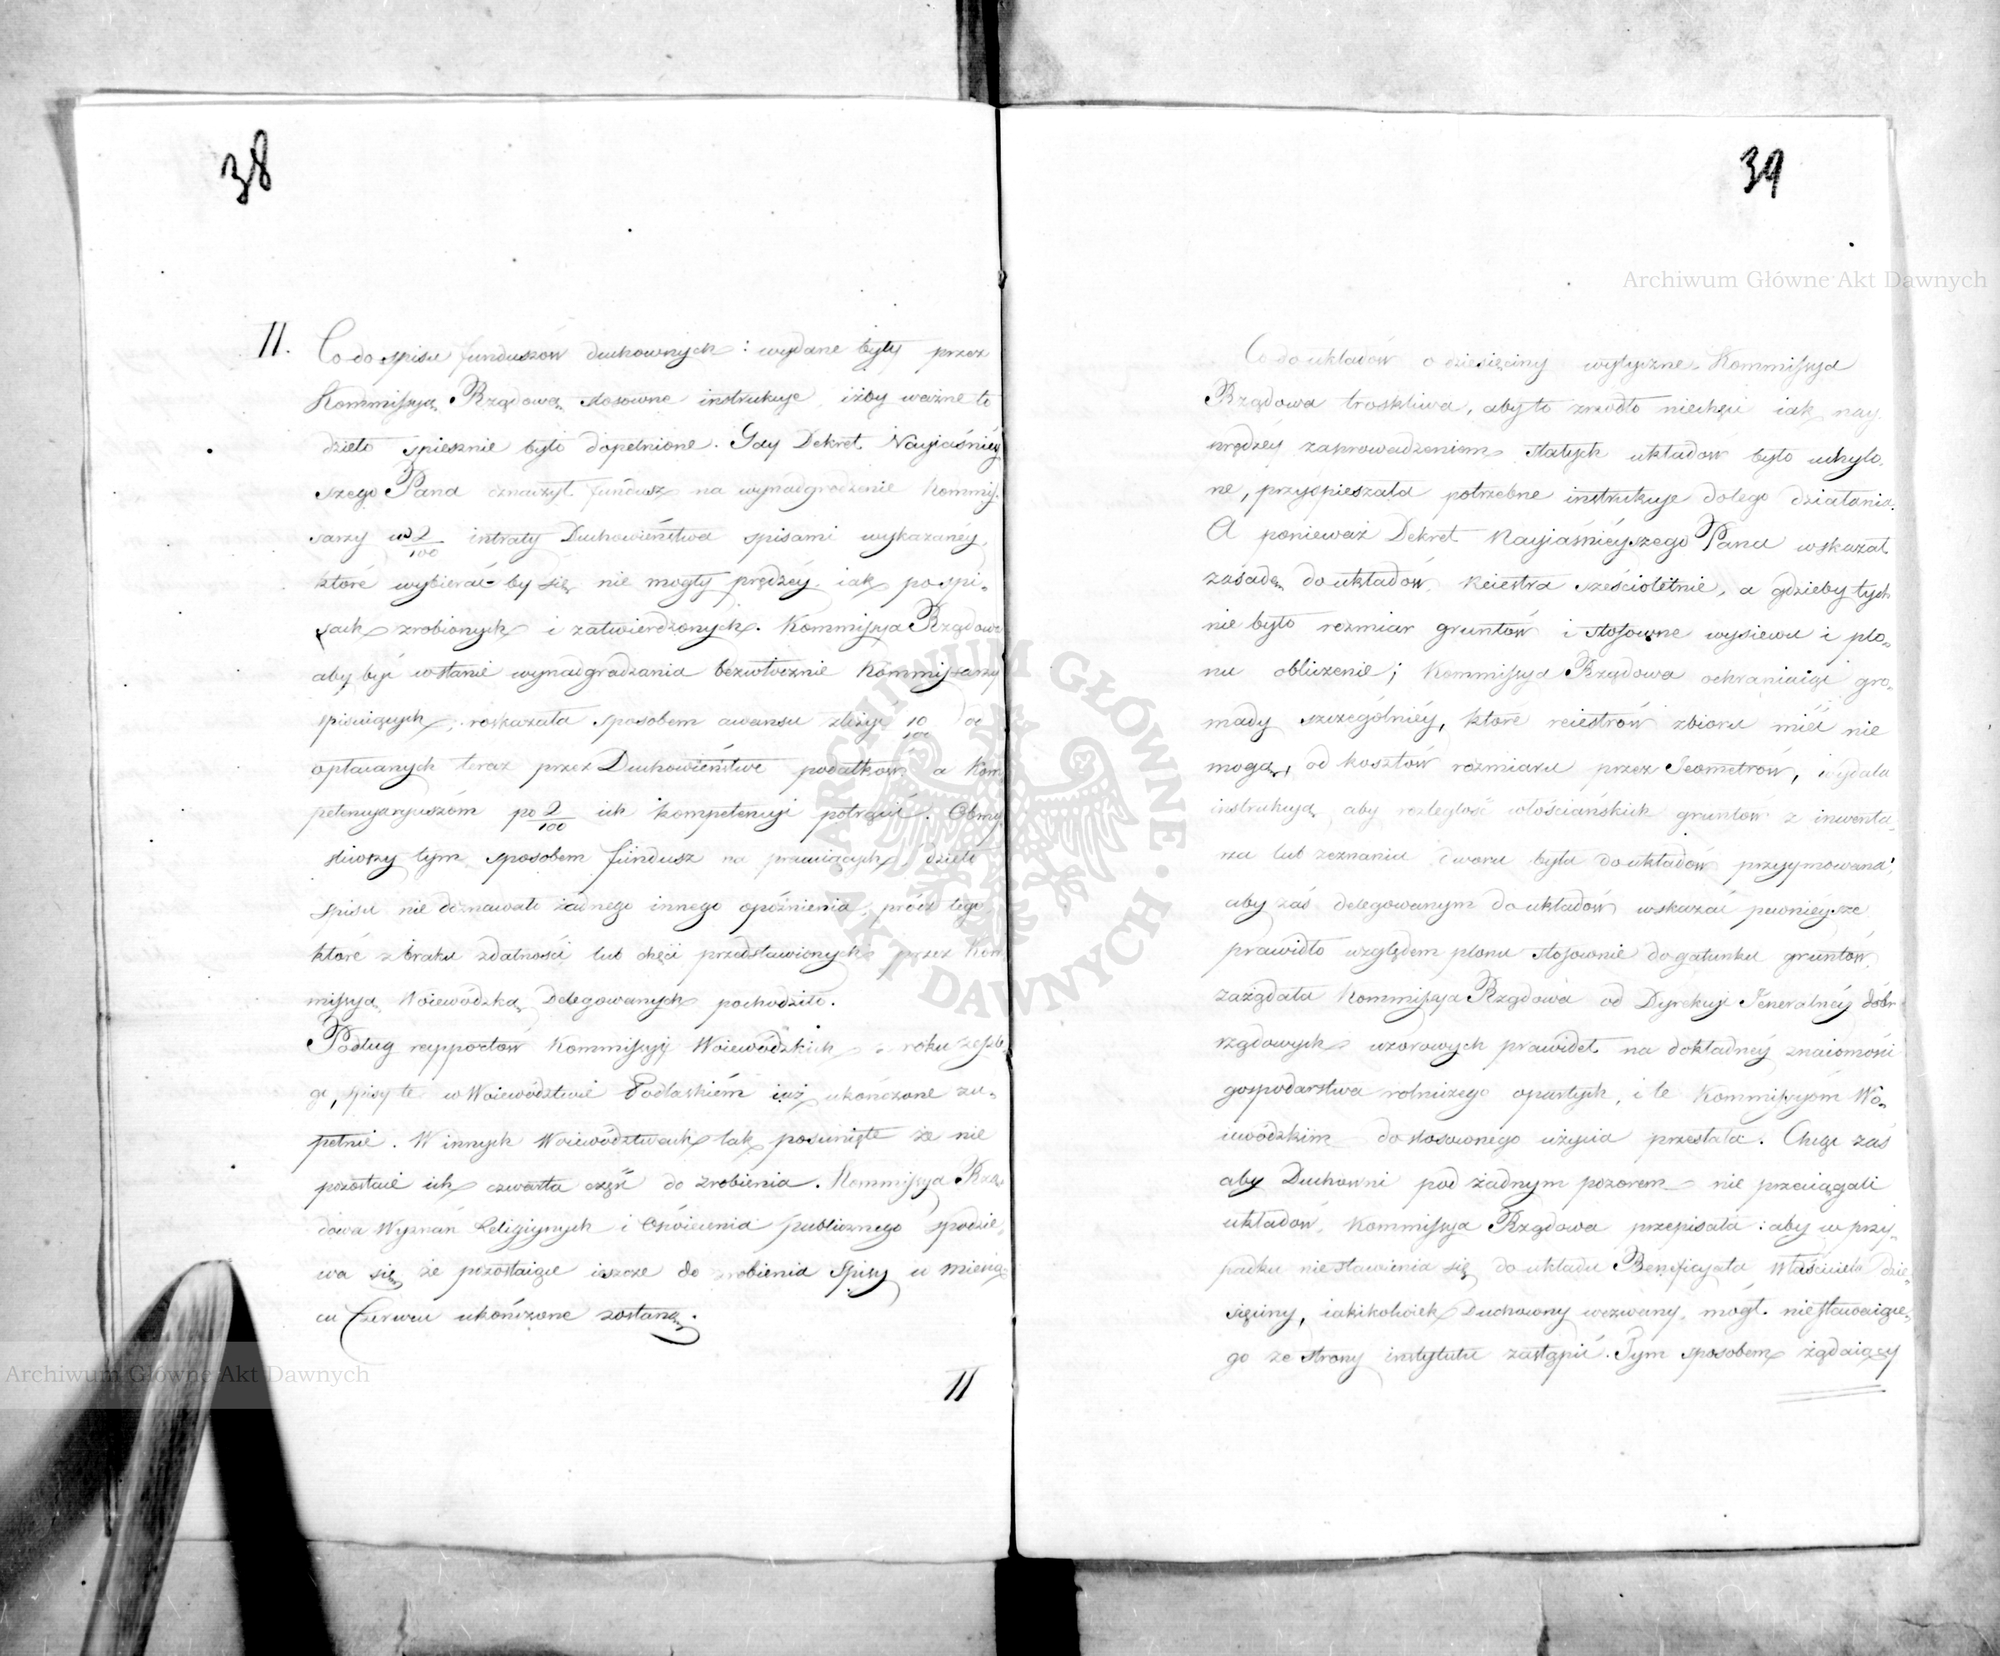 38
II. Co do spisu funduszów duchownych: wydane były przez
Kommissyą Rządową stosowne instrukcye, iżby ważne to
dzieło spiesznie było dopełnione. Gdy Dekret Nayiaśniéy-
szego Pana oznaczył fundusz na wynadgrodzenie Kommis-
sarzy w 2/100 intraty Duchowieństwa spisami wykazanéy,
które wybierać by się nie mogły prędzéy iak po spi-
sach zrobionych i zatwierdzonych. Kommissya Rządowa
aby być w stanie wynadgradzania bezwłocznie Kommissarzy
spisuiących, roskazała sposobem awansu złożyć 10/100 od
opłacanych teraz przez Duchowieństwo podatków a Kom-
petencyaryuszóm po 2/100 ich kompetencyi potrącić. Obmy-
śliwszy tym sposobem fundusz na pracuiących, dzieło
spisu nie doznawało żadnego innego opóźnienia, prócz tego
które z braku zdatności lub chęci przedstawionych przez Kom-
missyą Woiewódzką Delegowanych pochodziło.
Podług rapportów Kommissyi Woiewódzkich z roku zeszłe-
go, spisy te w Woiewództwie Podlaskiém iuż ukończone zu-
pełnie. W innych Woiewództwach tak posunięte że nie
pozostaie ich czwarta część do zrobienia. Kommissya Rzą-
dowa Wyznań Religiynych i Oświecenia publicznego spodzie-
wa się że pozostaiące ieszcze do zrobienia spisy w miesią-
cu Czerwcu ukończone zostaną.
II
39
Archiwum Główne Akt Dawnych
Co do układów o dziesięciny wytyczne Kommissya
Rządowa troskliwa, aby to zrzódło niechęci iak nay-
prędzéy zaprowadzeniem stałych układów było uchylo-
ne, przyspieszała potrzebne instrukcye do tego działania.
A ponieważ Dekret Nayiaśniéyszego Pana wskazał
zasadę do układów Reiestra sześcioletnie, a gdzieby tych
nie było rozmiar gruntów i stosowne wysiewu i plo-
nu obliczenie; Kommissya Rządowa ochraniaiąc gro-
mady szczególniéy, które reiestrów zbioru mieć nie
mogą, od kosztów rozmiaru przez Jeometrów, wydała
instrukcyą aby rozległość włościańskich gruntów z inwenta-
rza lub zeznania dworu była do układów przyymowana;
aby zaś delegowanym do układów wskazać pewnieysze
prawidło względem plonu stosownie do gatunku gruntów,
zażądała Kommissya Rządowa od Dyrekcyi Jeneralnéy dóbr
rządowych wzorowych prawideł na dokładnéy znaiomości
gospodarstwa rolniczego opartych, i te Kommissyóm Wo-
iewódzkim do stosownego użycia przesłała. Chcąc zaś
aby Duchowni pod żadnym pozorem nie przeciągali
układów, Kommissya Rządowa przepisała: aby w przy-
padku niestawienia się do układu Beneficyata, właściciela dzie-
sięciny, iakikolwiek Duchowny wezwany, mógł niestawaiące-
go ze strony instytutu zastąpić. Tym sposobem żądaiący
Archiwum Główne Akt Dawnych
ARCHIWUM GŁÓWNE AKT DAWNYCH